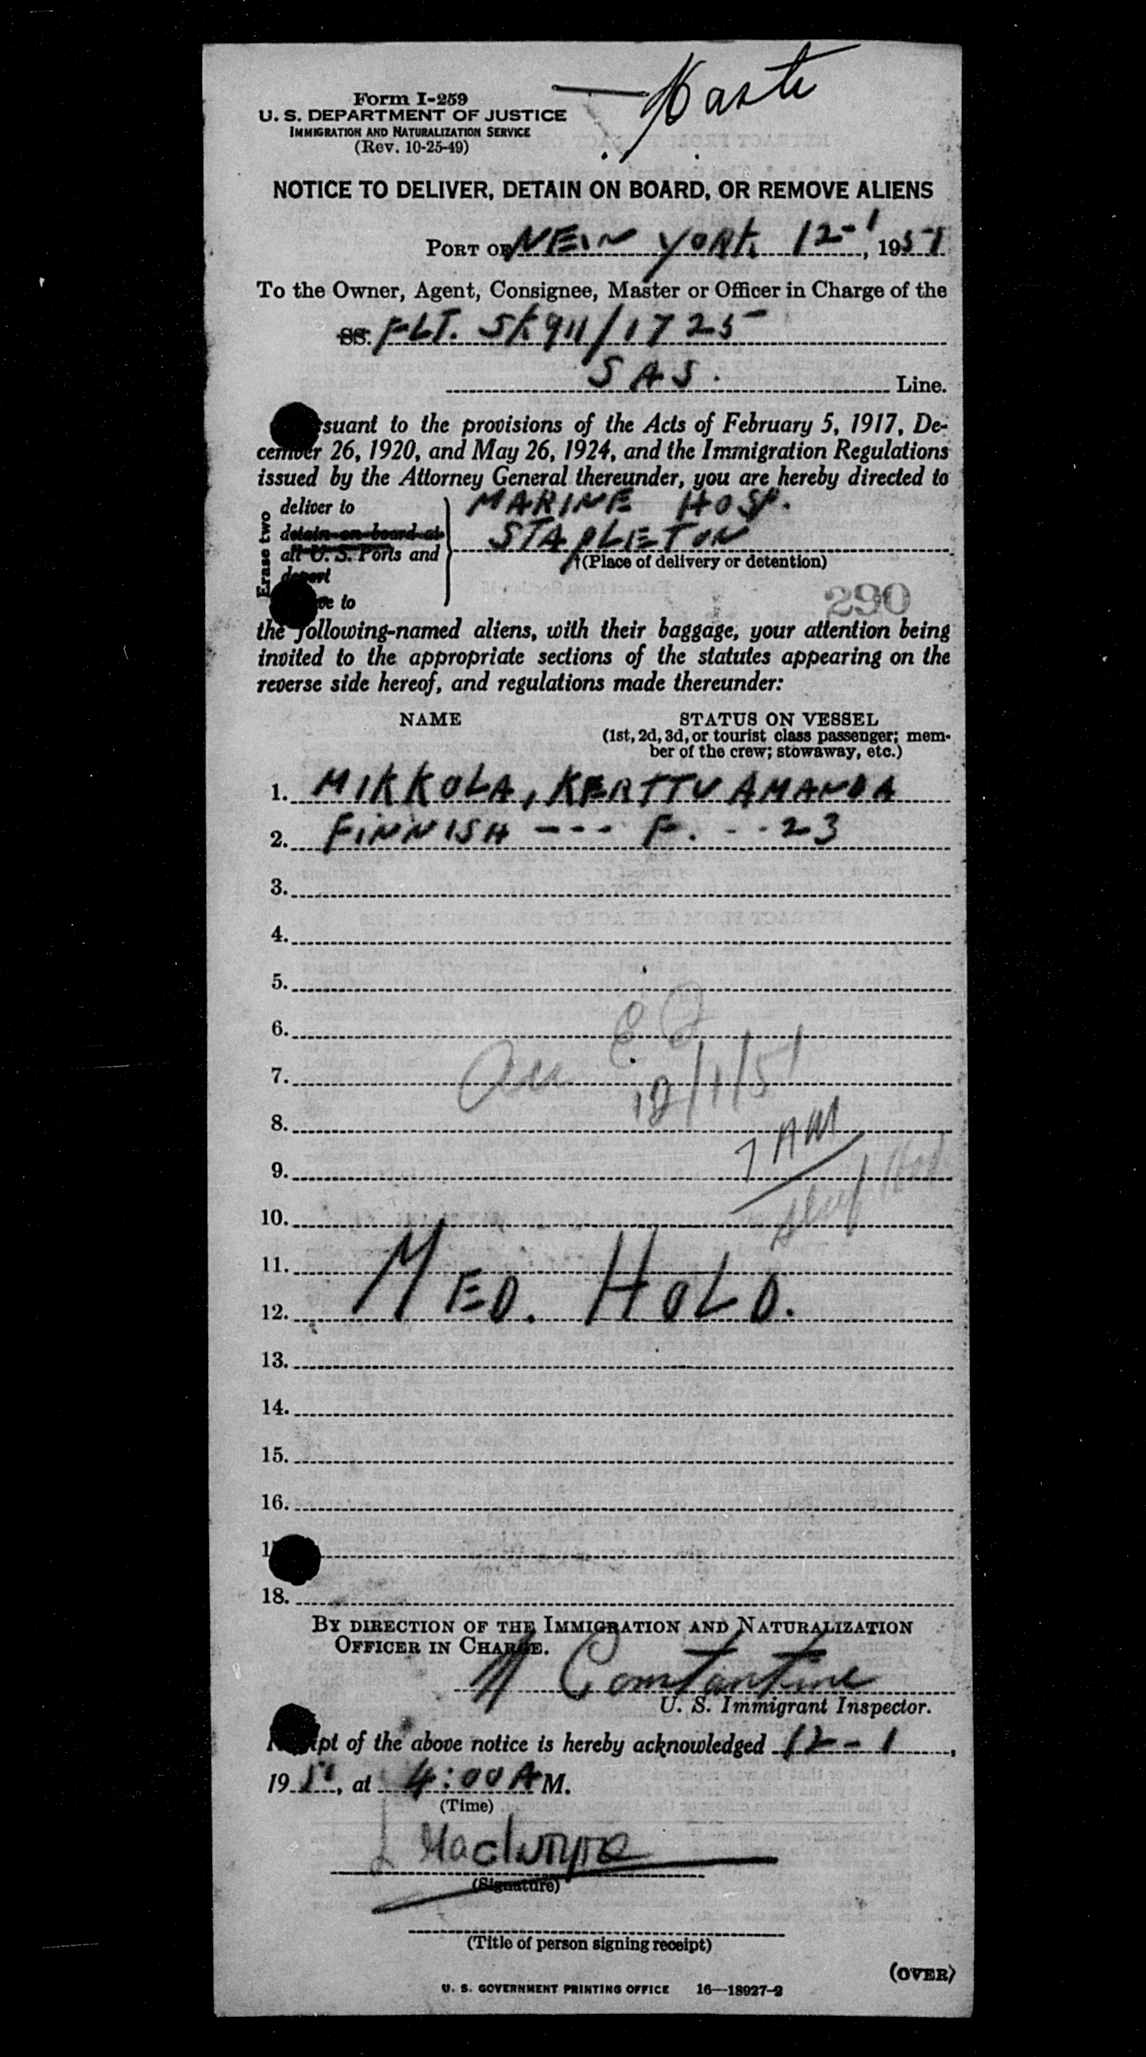 Haste
Form I-259
U. S. DEPARTMENT OF JUSTICE
IMMIGRATION AND NATURALIZATION SERVICE
(Rev. 10-25-49)
NOTICE TO DELIVER, DETAIN ON BOARD, OR REMOVE ALIENS
PORT OF NEW YORK 12-1, 1951
To the Owner, Agent, Consignee, Master or Officer in Charge of the
SS. FLT. SK911/1725
SAS. Line.
suant to the provisions of the Acts of February 5, 1917, De-
cember 26, 1920, and May 26, 1924, and the Immigration Regulations
issued by the Attorney General thereunder, you are hereby directed to
Erase two
deliver to
detain on board at
all U. S. Ports and
deport
to
MARINE HOSP.
STAPLETON
(Place of delivery or detention)
290
the following-named aliens, with their baggage, your attention being
invited to the appropriate sections of the statutes appearing on the
reverse side hereof, and regulations made thereunder:
NAME
STATUS ON VESSEL
(1st, 2d, 3d, or tourist class passenger; mem-
ber of the crew; stowaway, etc.)
1. MIKKOLA, KERTTU AMANDA
2. FINNISH --- F. --23
3.
4.
5.
6.
7. 12/1/51
8. 7 AM
9.
10.
11.
12. MED. HOLD.
13.
14.
15.
16.
1
18.
BY DIRECTION OF THE IMMIGRATION AND NATURALIZATION
OFFICER IN CHARGE.
Constantine
U. S. Immigrant Inspector.
ipt of the above notice is hereby acknowledged 12-1,
1951, at 4:00 A M.
(Time)
MacIntyre
(Signature)
(Title of person signing receipt)
(OVER)
U. S. GOVERNMENT PRINTING OFFICE 16—18927-2